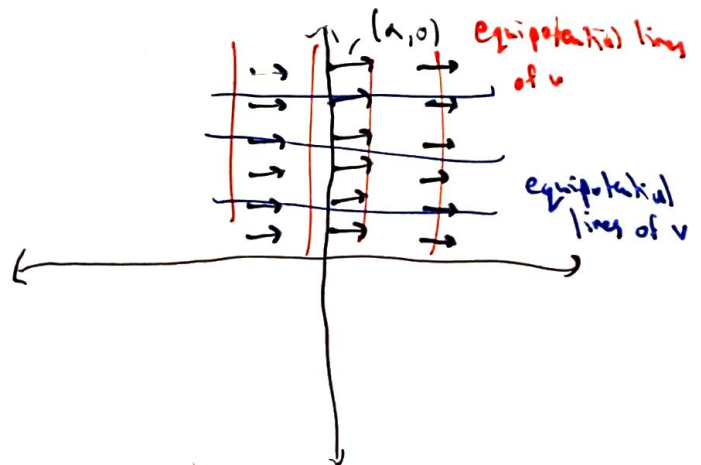 (α,0)
equipotential lines
of u
equipotential
lines of v